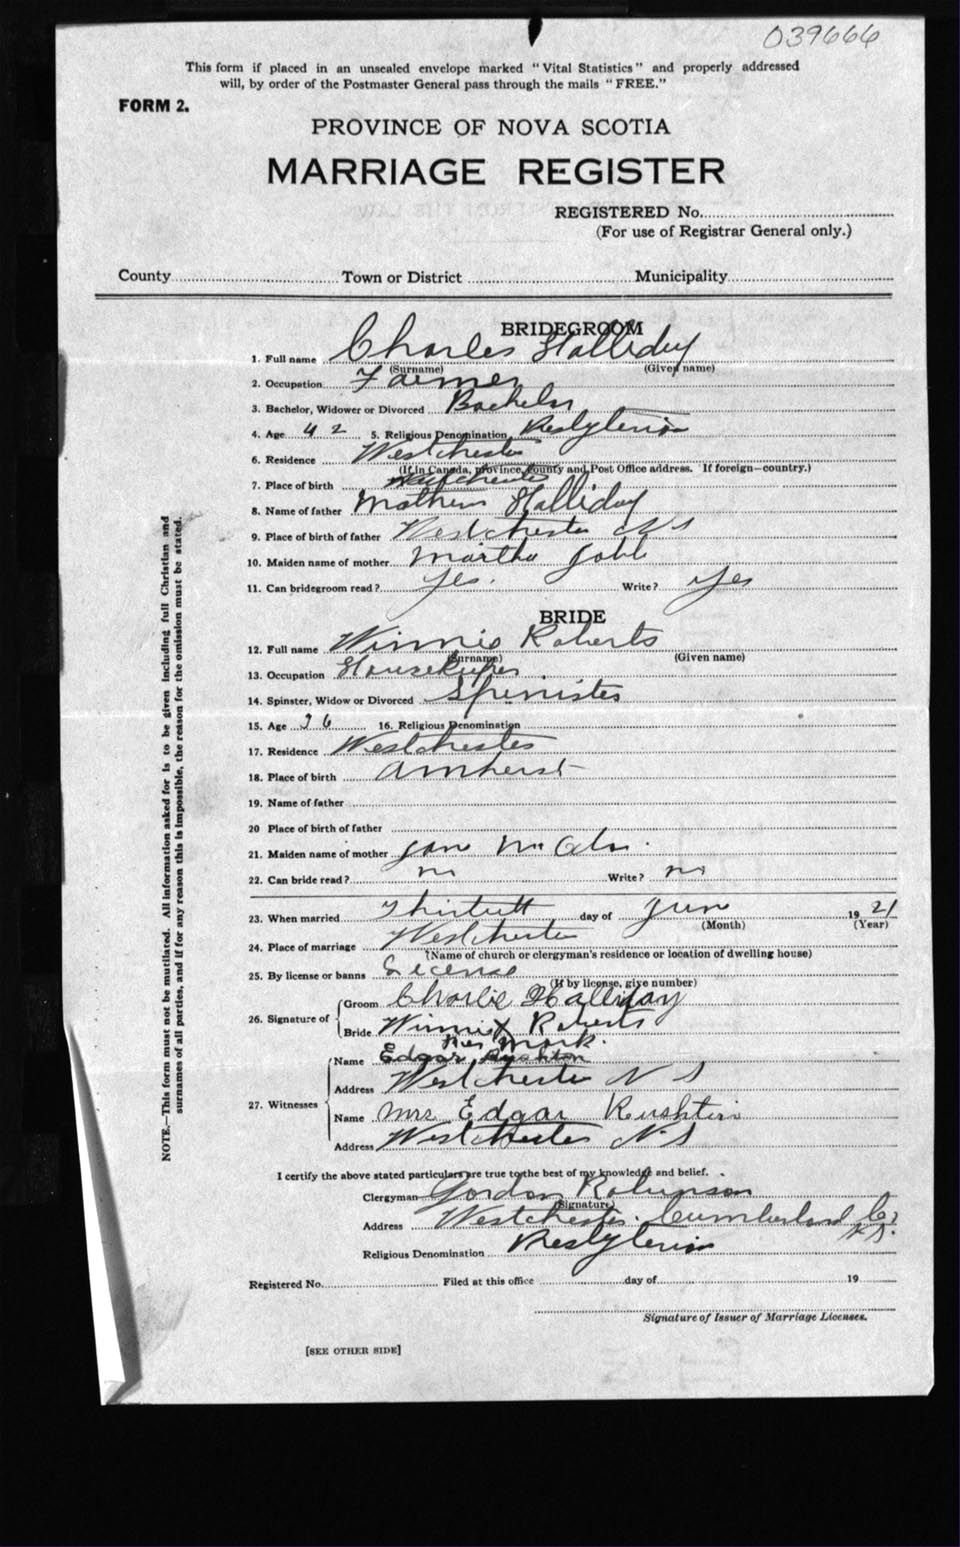 039666
This form if placed in an unsealed envelope marked "Vital Statistics" and properly addressed
will, by order of the Postmaster General pass through the mails "FREE."
FORM 2.
PROVINCE OF NOVA SCOTIA
MARRIAGE REGISTER
REGISTERED No.
(For use of Registrar General only.)
County Town or District Municipality
BRIDEGROOM
1. Full name Charles Halliday
(Surname) (Given name)
2. Occupation Farmer
3. Bachelor, Widower or Divorced Bachelor
4. Age 42 5. Religious Denomination Presbyterian
6. Residence Westchester
(If in Canada, province, county and Post Office address. If foreign—country.)
7. Place of birth Westchester
8. Name of father Mathew Halliday
9. Place of birth of father Westchester N S
10. Maiden name of mother Martha
11. Can bridegroom read? Yes. Write? Yes
BRIDE
12. Full name Winnie Roberts
(Surname) (Given name)
13. Occupation Housekeeper
14. Spinster, Widow or Divorced Spinister
15. Age 36 16. Religious Denomination
17. Residence Westchester
18. Place of birth Amherst
19. Name of father
20 Place of birth of father
21. Maiden name of mother Jane
22. Can bride read? no Write? no
23. When married day of June 1921
(Month) (Year)
24. Place of marriage Westchester
(Name of church or clergyman's residence or location of dwelling house)
25. By license or banns License
(If by license, give number)
26. Signature of Groom Charlie Halliday
Bride Winnie X Roberts
her Mark.
27. Witnesses Name Edgar Rushton
Address Westchester N S
Name Mrs Edgar Rushton
Address Westchester N.S
I certify the above stated particulars are true to the best of my knowledge and belief.
Clergyman Gordon Robinson
(Signature)
Address Westchester. Cumberland Co
N.S.
Religious Denomination Presbyterian
Registered No. Filed at this office day of 19
Signature of Issuer of Marriage Licenses.
[SEE OTHER SIDE]
NOTE.—This form must not be mutilated. All information asked for is to be given including full Christian and
surnames of all parties, and if for any reason this is impossible, the reason for the omission must be stated.